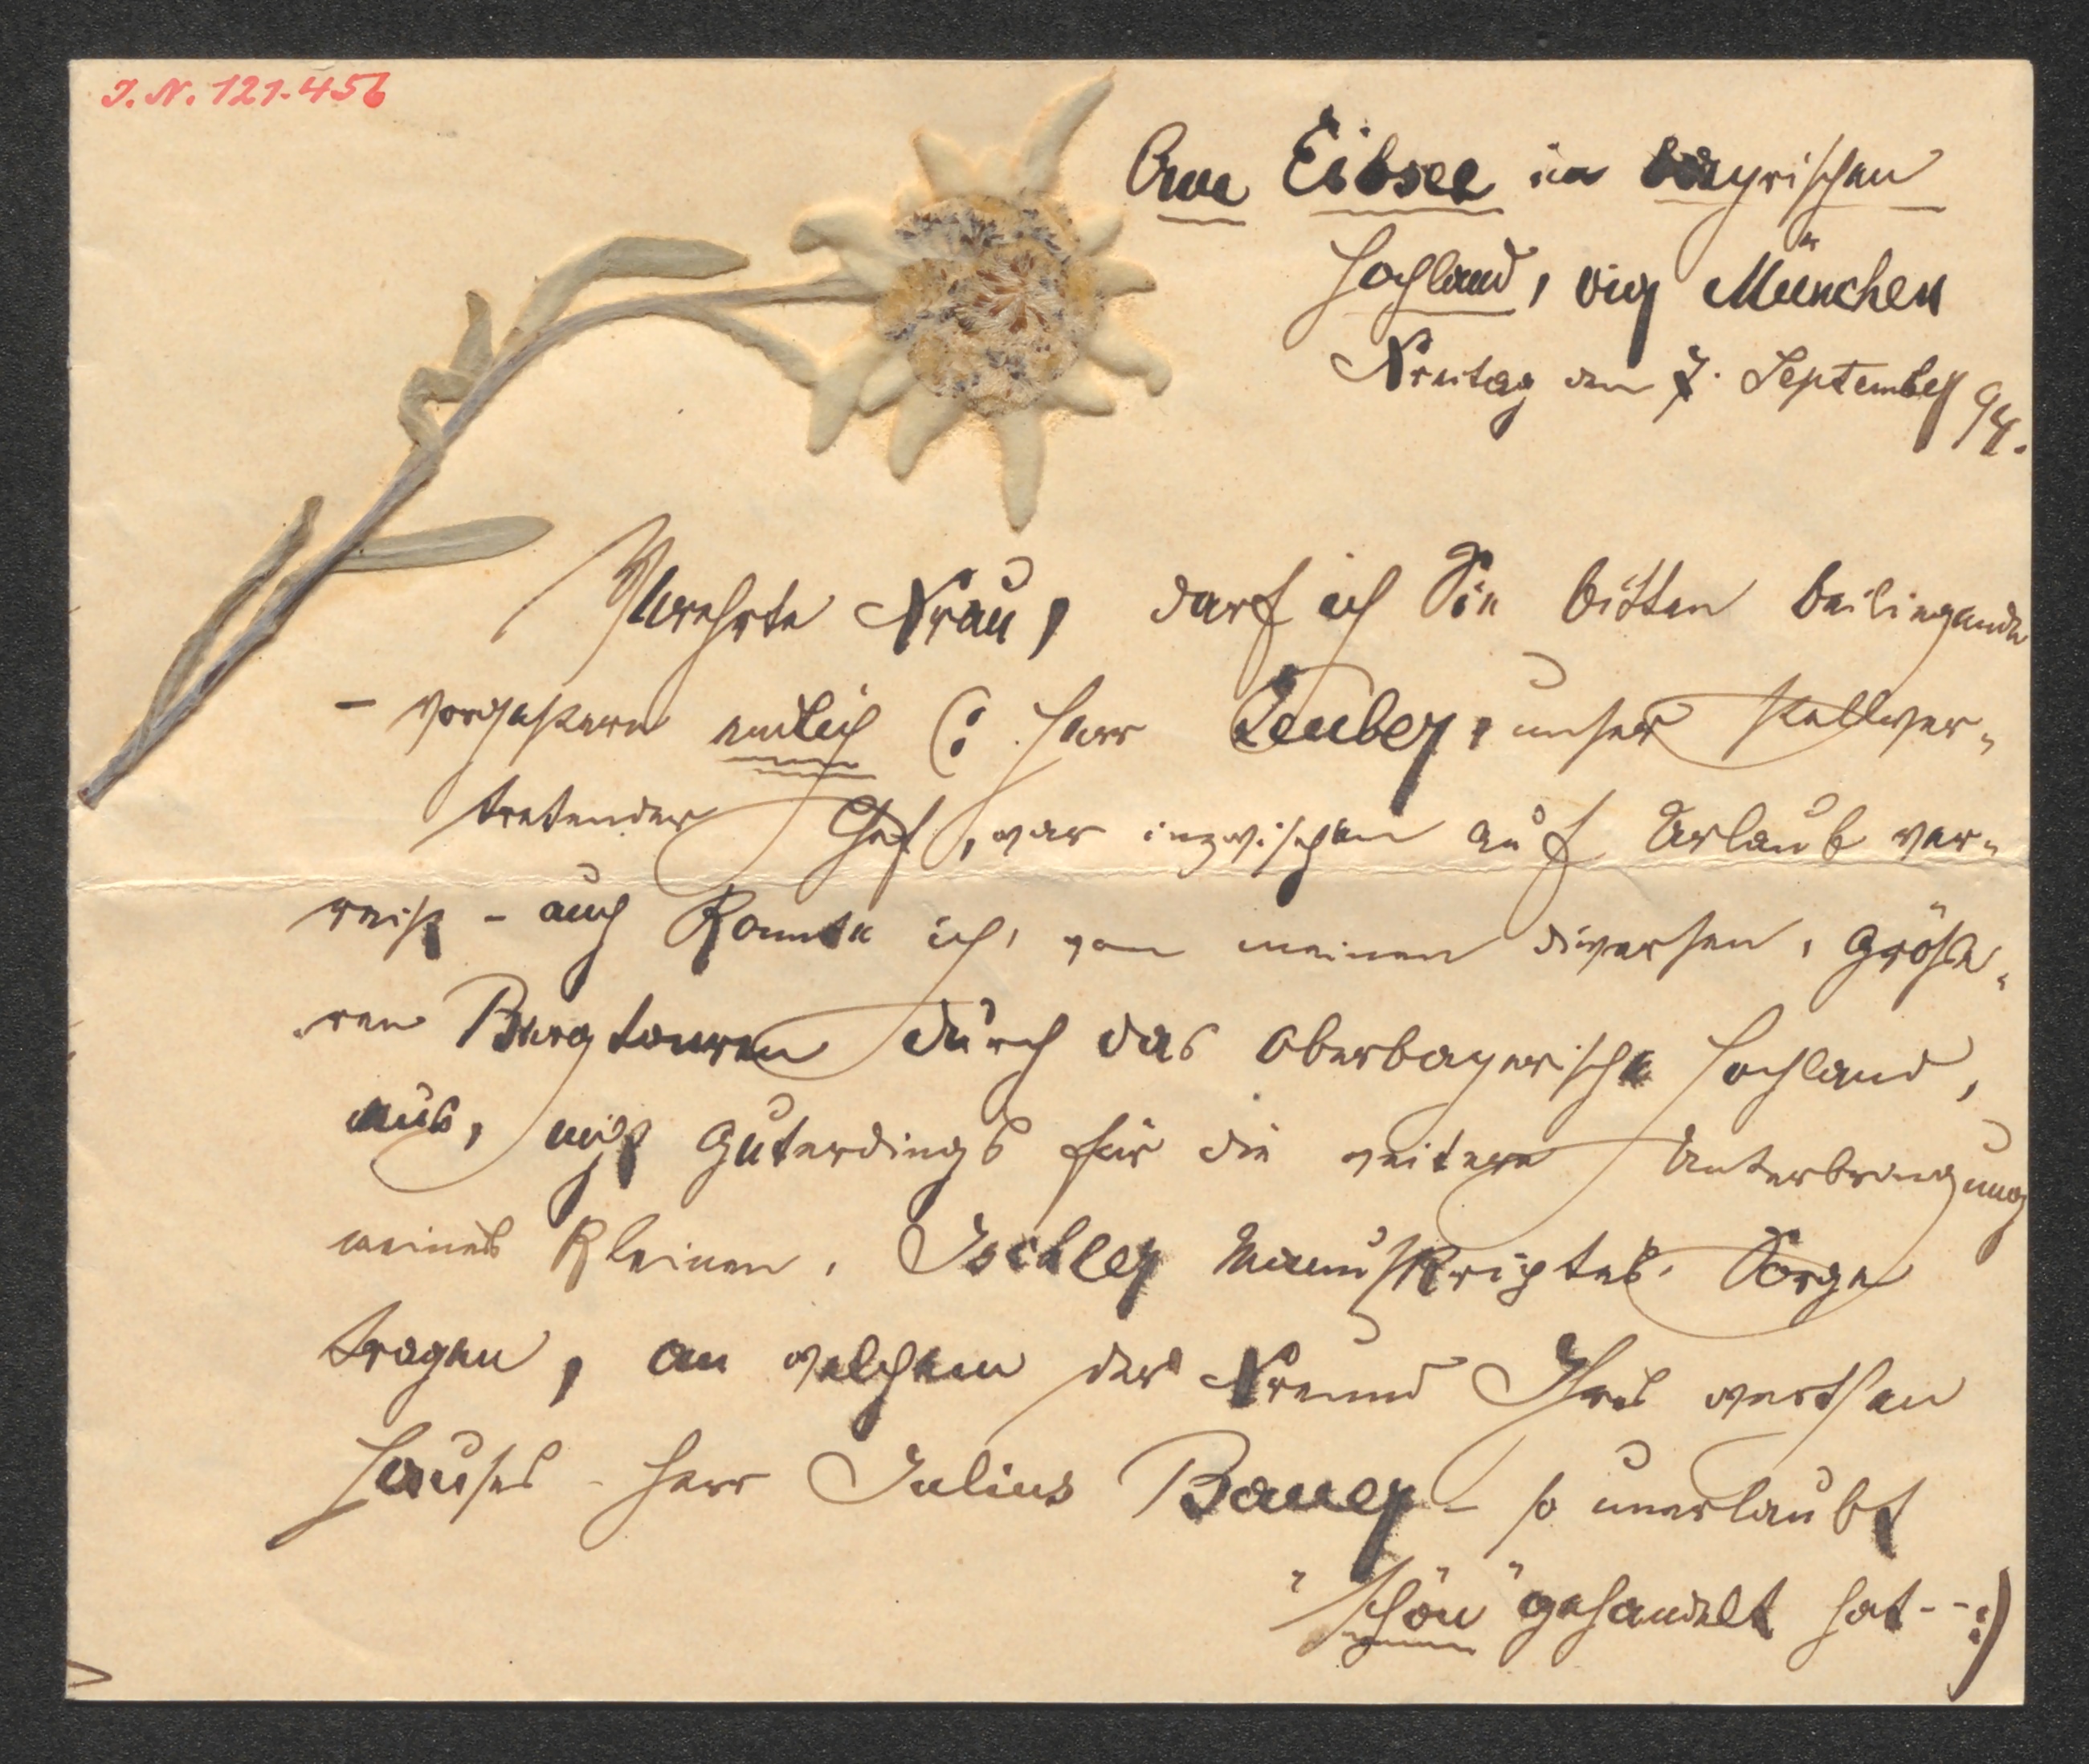 J. N. 121.456
Am Eibsee im bayrischen
Hochland, via München
Freitag den 7. September 94.
Verehrte Frau, darf ich Sie bitten beiliegende
– vorgestern endlich (: Herr Teuber, unser stellver-
tretender Chef, war inzwischen auf Urlaub ver-
reist – auch konnte ich, von meinen diversen, größe-
ren Bergtouren durch das oberbayerische Hochland,
aus, nicht guterdings für die weitere Unterbringung
meines kleinen, Ischler Manuskriptes, Sorge
tragen, an welchem der Freund Ihres werthen
Hauses – Herr Julius Bauer – so unerlaubt
"schön" gehandelt hat - - :)